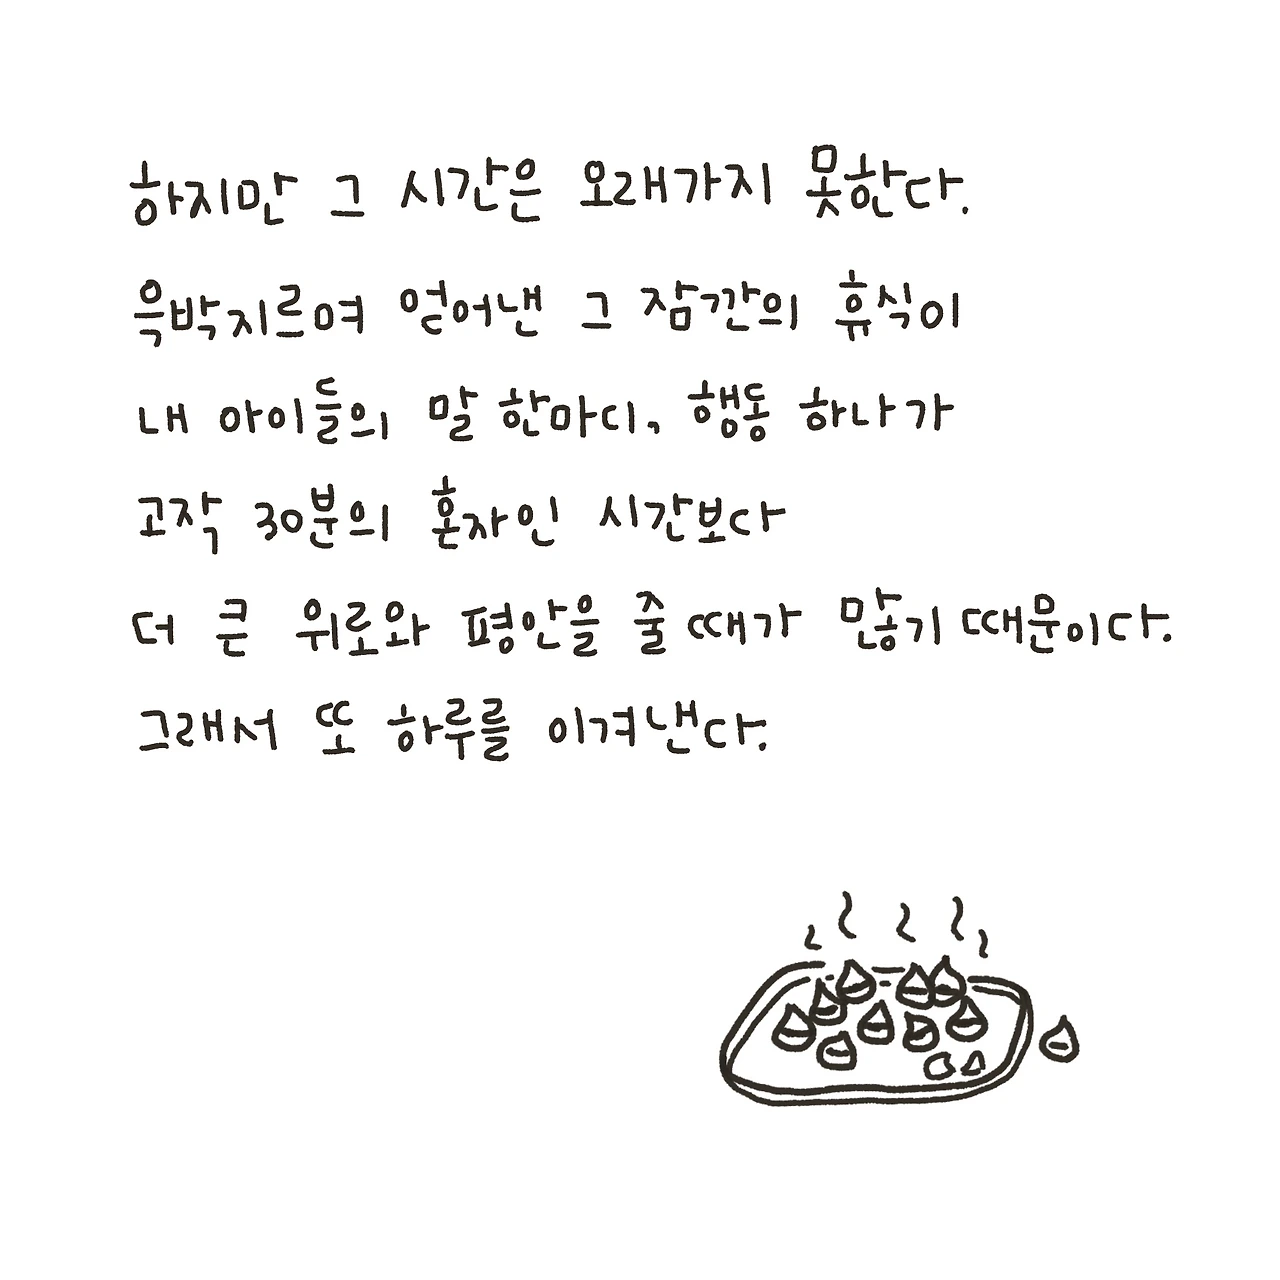 하지만 그 시간은 오래가지 못한다.
윽박지르여 얻어낸 그 잠깐의 휴식이
내 아이들의 말 한마디, 행동 하나가
고작 30분의 혼자인 시간보다
더 큰 위로와 평안을 줄 때가 많기 때문이다.
그래서 또 하루를 이겨낸다.